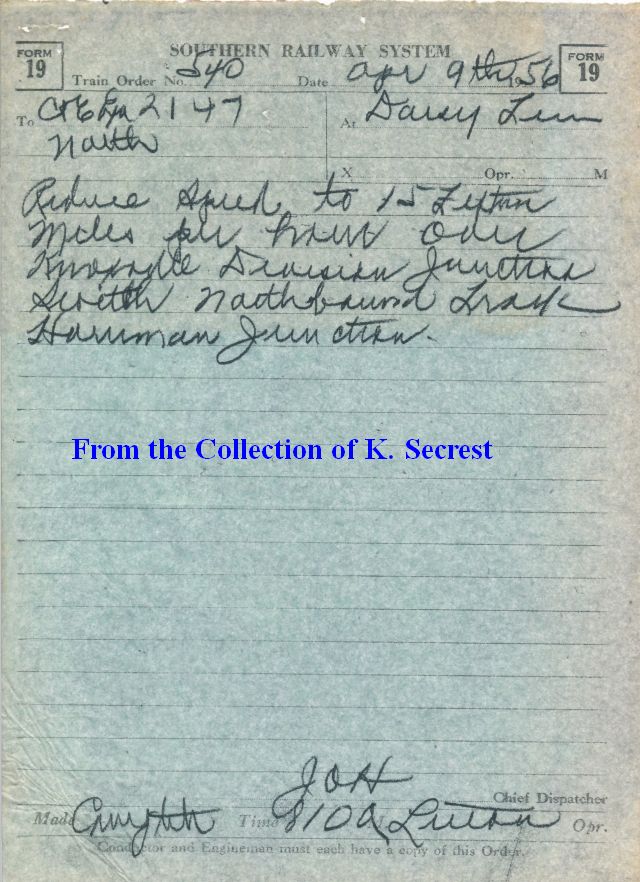 FORM 19 SOUTHERN RAILWAY SYSTEM FORM 19
Train Order No. 540 Date Apr 9th 1956
To C&E Exa 2147 At Daisy Tenn
North
X Opr. M
Reduce Speed to 15 Fifteen
Miles per hour Over
Knoxville Division Junction
Switch Northbound Track
Harriman Junction.
From the Collection of K. Secrest
JOH
Chief Dispatcher
Made Time 810A M Opr.
Conductor and Engineman must each have a copy of this Order.